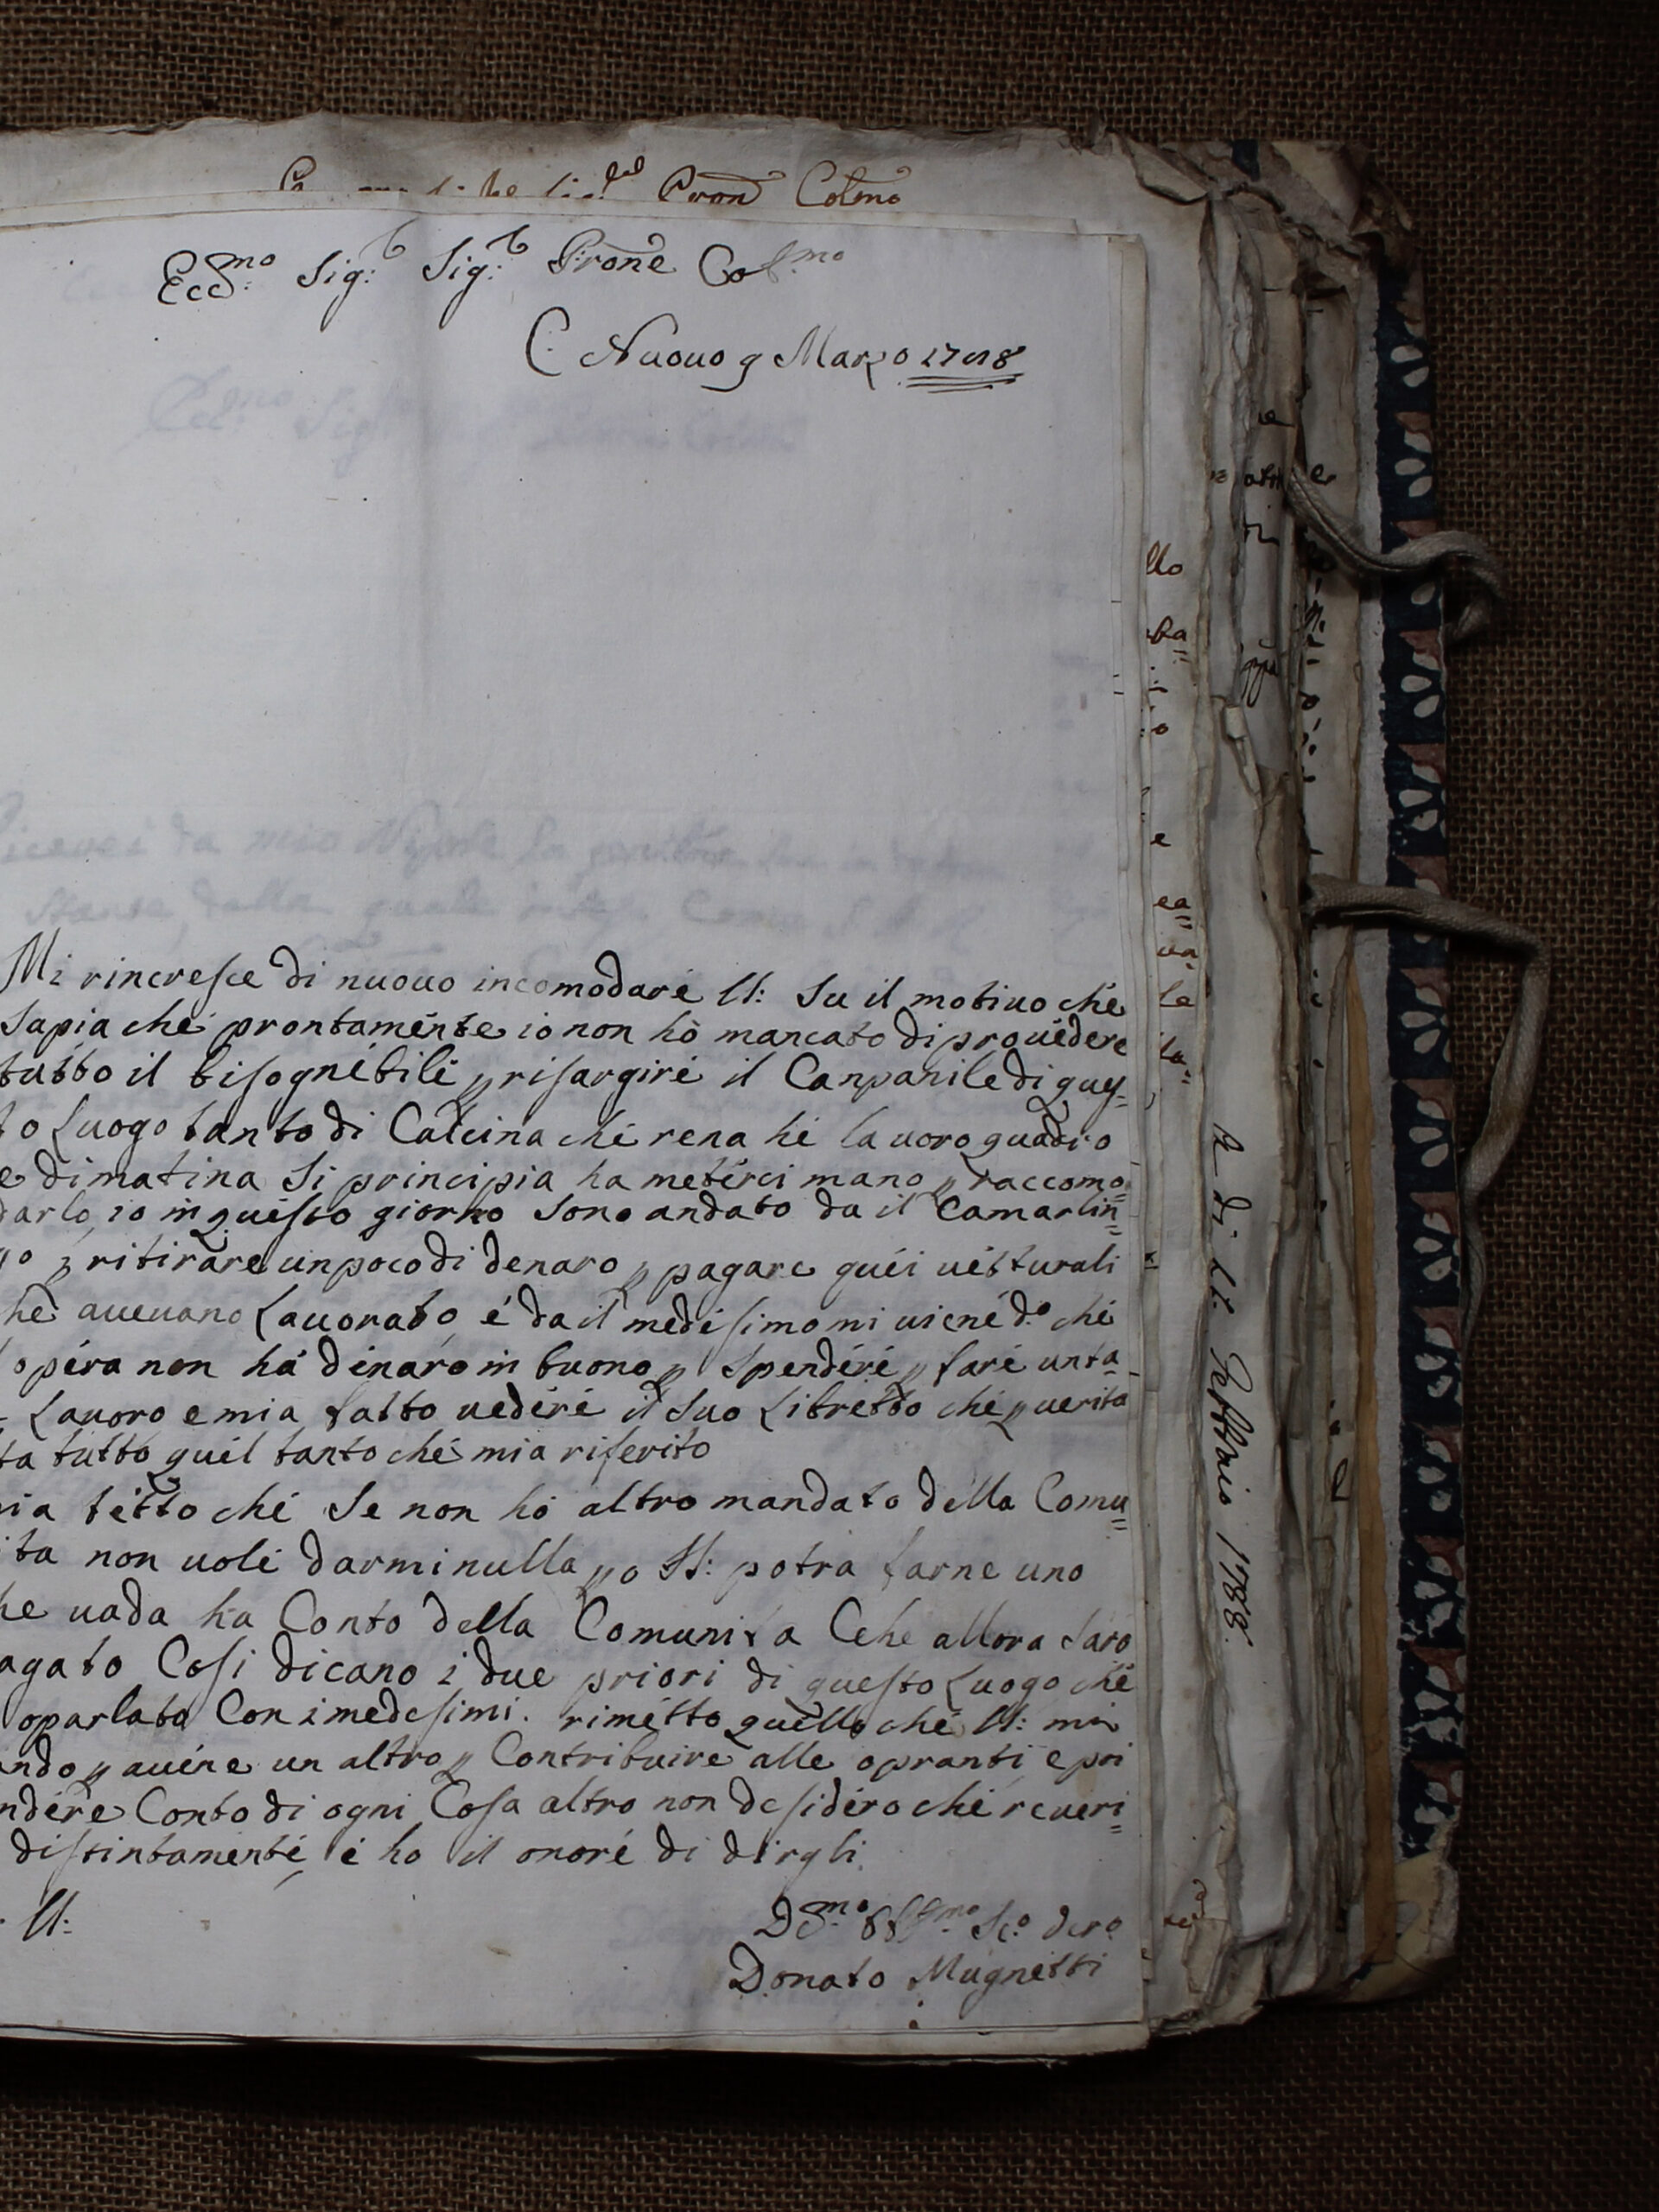 Pron Colmo
Eccmo: Sig:r Sig:r Prone Colmo
C. Nuouo 9 Marzo
Mi rincresce di nuouo incomodare U: Su il motiuo che
Sapia che prontamente io non hò mancato di prouedere
tutto il bisognebile p risargire il Canpanile di ques=
to Luogo tanto di Calcina che rena hé lauoro quadro
e dimatina Si principia ha meterci mano p raccomo=
darlo, io in questo giorno Sono andato da il Camarlin=
go p ritirare un poco di denaro p pagare quei uetturali
he aueuano Lauorato, é da il medesimo mi uiene d.o che
opera non há denaro in buono p Spendere p fare un ta=
Lauoro e mia fatto uedere il Suo Libretto che p uerita
ta tutto quel tanto che mia riferito
ia detto che Se non ho altro mandato della Comu=
ita non uole darmi nulla po U: potra farne uno
he uada ha Conto della Comunita Cehe allora Saro
agato Cosi dicano i due priori di questo Luogo che
o parlato Con i medesimi. rimetto quello che U: mi
ando p auere un altro p Contribuire alle opranti e poi
ndere Conto di ogni Cosa altro non desidero che reueri=
distintamente, e ho il onore di dirgli
U:
Donato Mugnetti
llo
ba=
o
e
ea=
ua
le
ta=
A di 11. Febbraio 1788